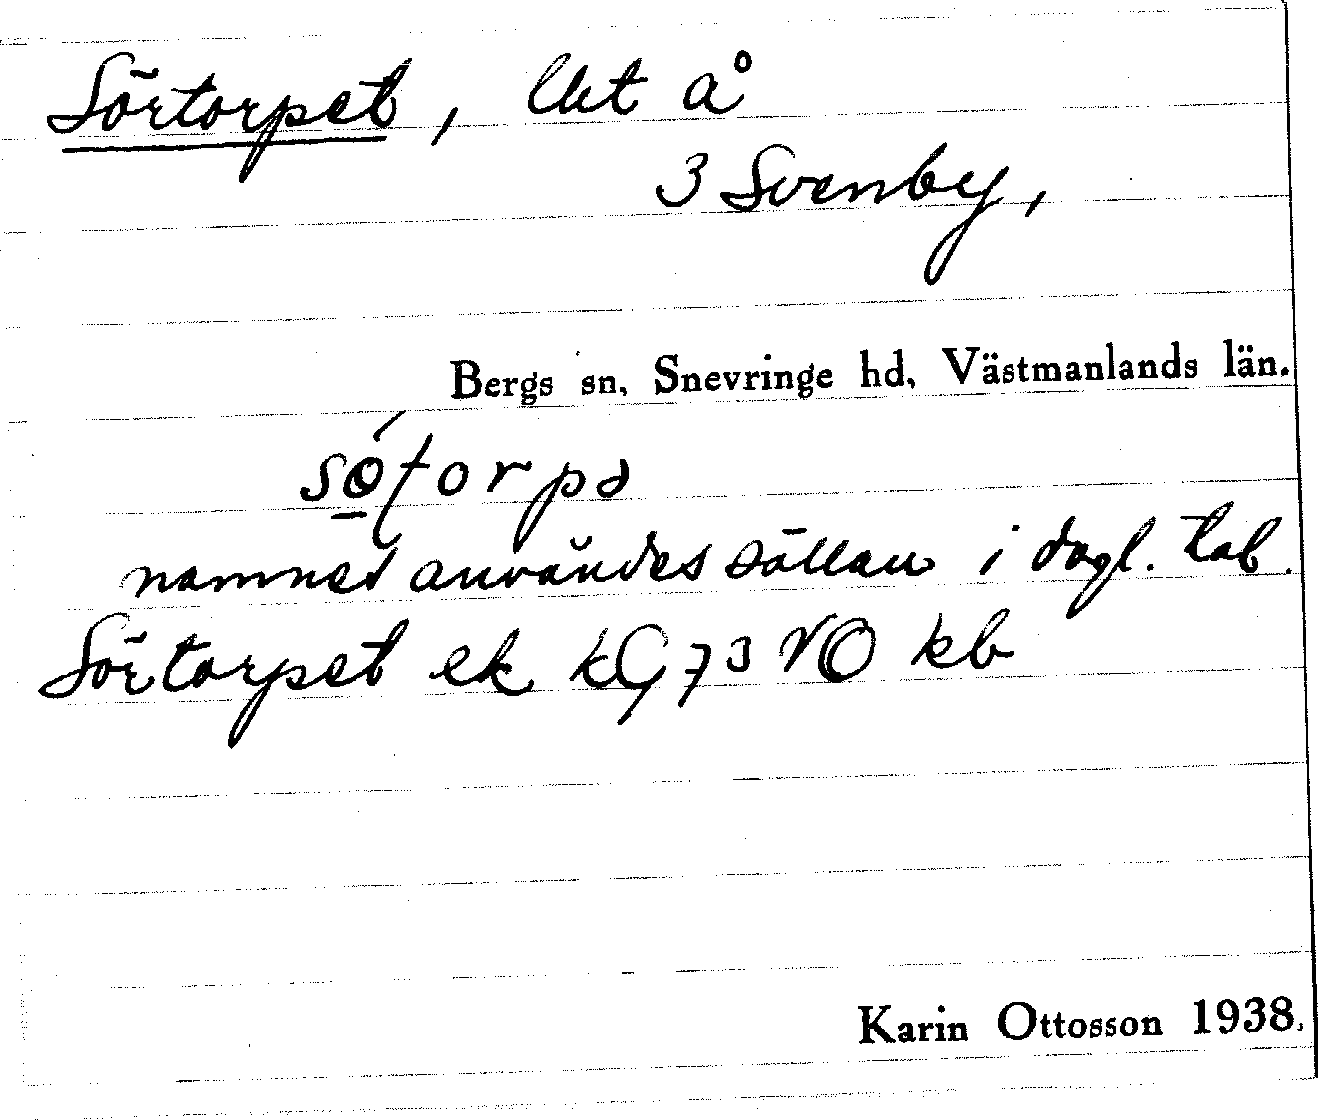 Sörtorpet, lht å
3 Svenby,
Bergs sn, Snevringe hd, Västmanlands län.
sö́torpə
namnet användes sällan i dagl. tal.
Sörtorpet ek kG73 NO kb
Karin Ottosson 1938.